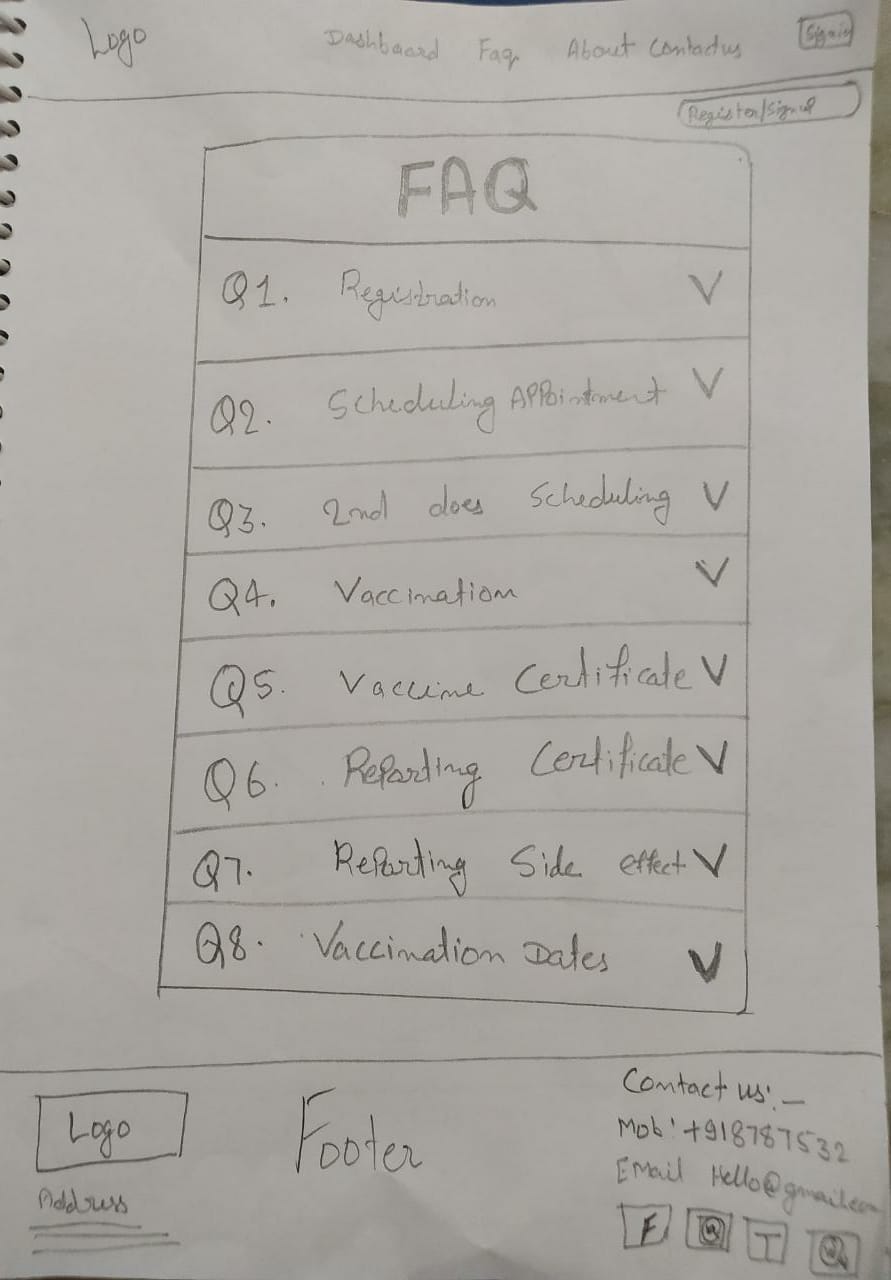 Logo Dashboard Faq About Contactus Signin
Register/Signup
FAQ
Q1. Registration
Q2. Scheduling APPointment
Q3. 2nd does Scheduling
Q4. Vaccination
Q5. Vaccine Certificate
Q6. Reporting Certificate
Q7. Reporting Side effect
Q8. Vaccination Dates
Logo
Address
Footer
Contact us:-
Mob: +918787532
Email Hello@gmail.com
F
T